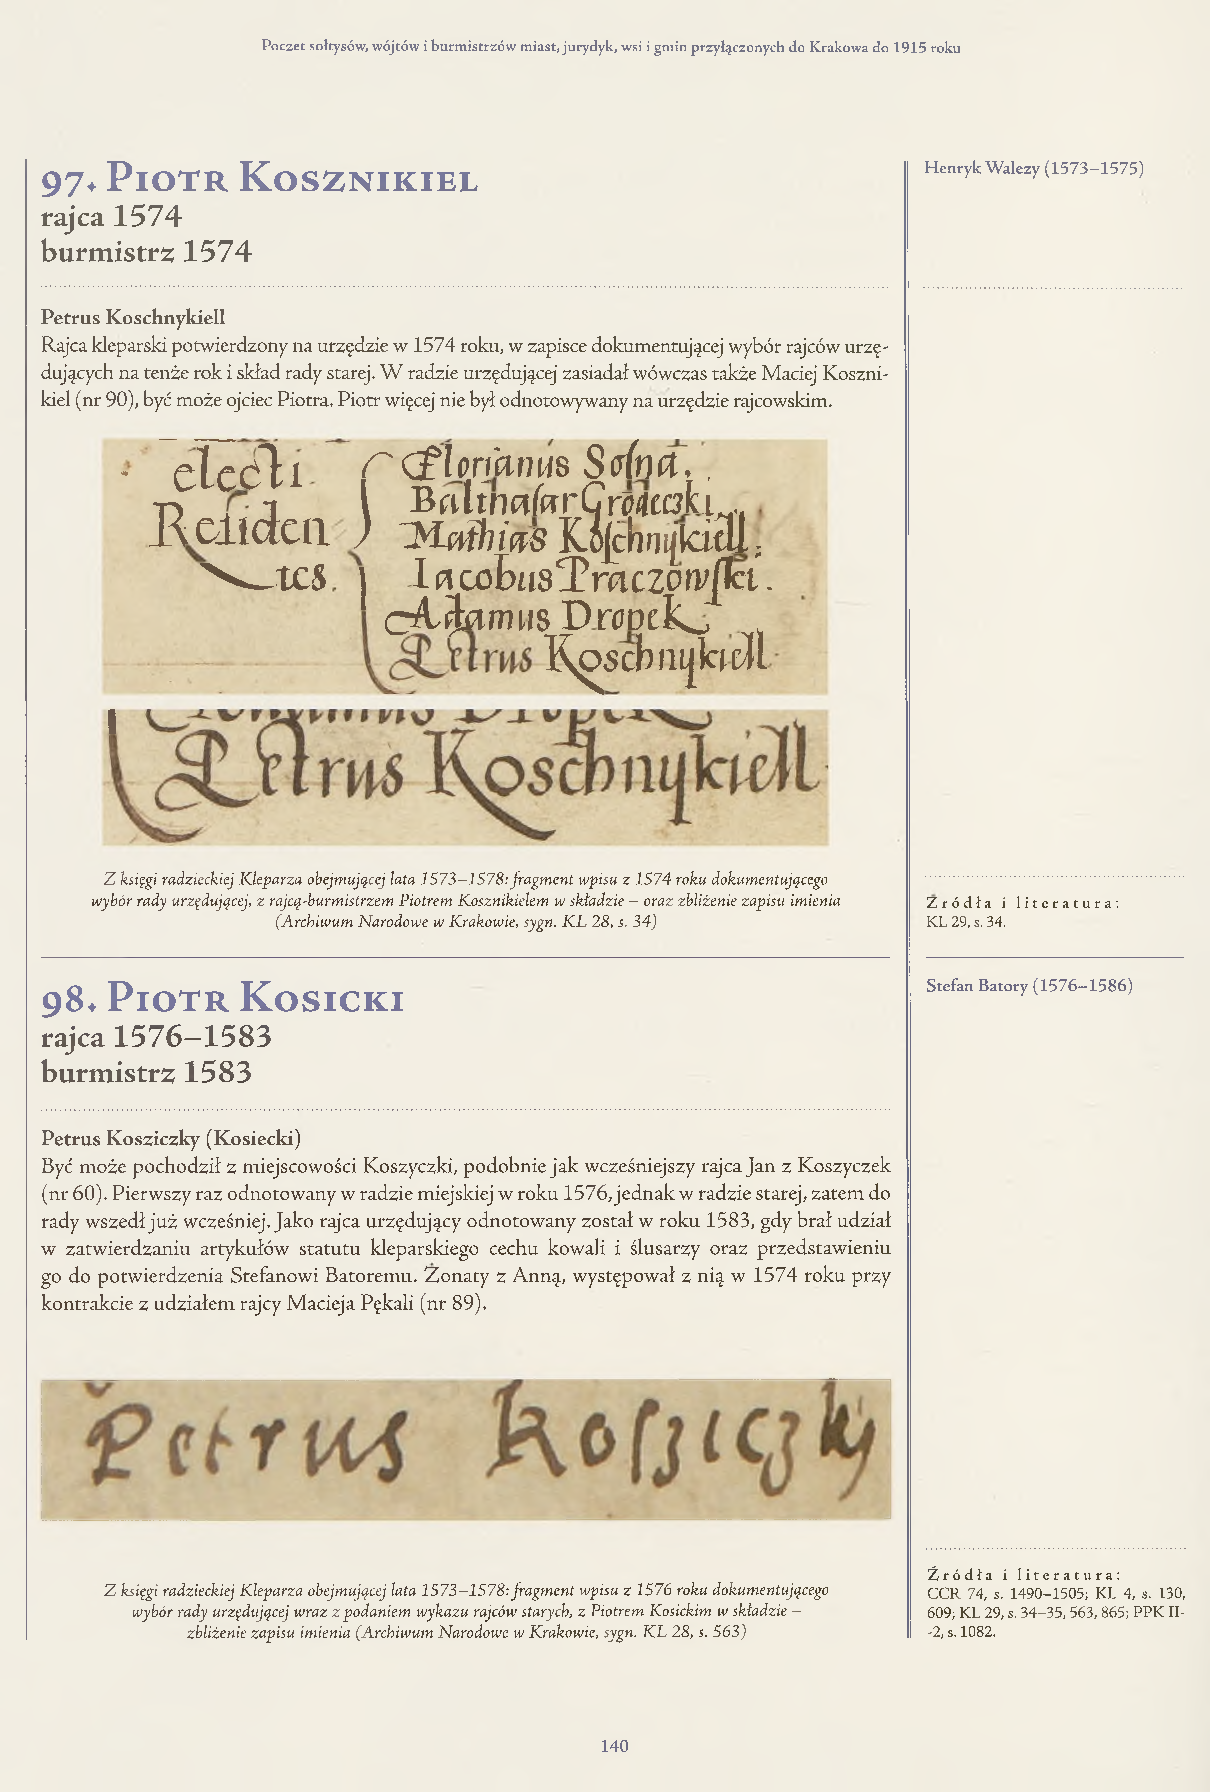 Poczet sołtysów, wójtów i burmistrzów miast, jurydyk, wsi i gmin przyłączonych do Krakowa do 1915 roku
97. Piotr Kosznikiel
rajca 1574
burmistrz 1574
Henryk Walezy (1573–1575)
Petrus Koschnykiell
Rajca kleparski potwierdzony na urzędzie w 1574 roku, w zapisce dokumentującej wybór rajców urzę-
dujących na tenże rok i skład rady starej. W radzie urzędującej zasiadał wówczas także Maciej Koszni-
kiel (nr 90), być może ojciec Piotra. Piotr więcej nie był odnotowywany na urzędzie rajcowskim.
electi
Residen
tes.
Florianus Sosna.
Balthasar Grodeczki.
Mathias Koschnykiell.
Iacobus Traczowski.
Adamus Dropek
Petrus Koschnykiell
Petrus Koschnykiell
Z księgi radzieckiej Kleparza obejmującej lata 1573–1578: fragment wpisu z 1574 roku dokumentującego
wybór rady urzędującej, z rajcą-burmistrzem Piotrem Kosznikielem w składzie – oraz zbliżenie zapisu imienia
(Archiwum Narodowe w Krakowie, sygn. KL 28, s. 34)
Źródła i literatura:
KL 29, s. 34.
98. Piotr Kosicki
rajca 1576–1583
burmistrz 1583
Stefan Batory (1576–1586)
Petrus Kosziczky (Kosiecki)
Być może pochodził z miejscowości Koszyczki, podobnie jak wcześniejszy rajca Jan z Koszyczek
(nr 60). Pierwszy raz odnotowany w radzie miejskiej w roku 1576, jednak w radzie starej, zatem do
rady wszedł już wcześniej. Jako rajca urzędujący odnotowany został w roku 1583, gdy brał udział
w zatwierdzaniu artykułów statutu kleparskiego cechu kowali i ślusarzy oraz przedstawieniu
go do potwierdzenia Stefanowi Batoremu. Żonaty z Anną, występował z nią w 1574 roku przy
kontrakcie z udziałem rajcy Macieja Pękali (nr 89).
Petrus Kosziczky
Z księgi radzieckiej Kleparza obejmującej lata 1573–1578: fragment wpisu z 1576 roku dokumentującego
wybór rady urzędującej wraz z podaniem wykazu rajców starych, z Piotrem Kosickim w składzie –
zbliżenie zapisu imienia (Archiwum Narodowe w Krakowie, sygn. KL 28, s. 563)
Źródła i literatura:
CCR 74, s. 1490–1505; KL 4, s. 130,
609; KL 29, s. 34–35, 563, 865; PPK II-
-2, s. 1082.
140